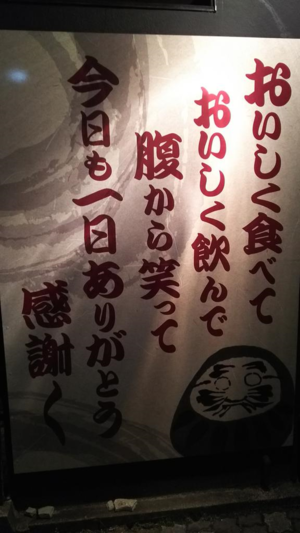 おいしく食べて
おいしく飲んで
腹から笑って
今日も一日ありがとう
感謝く